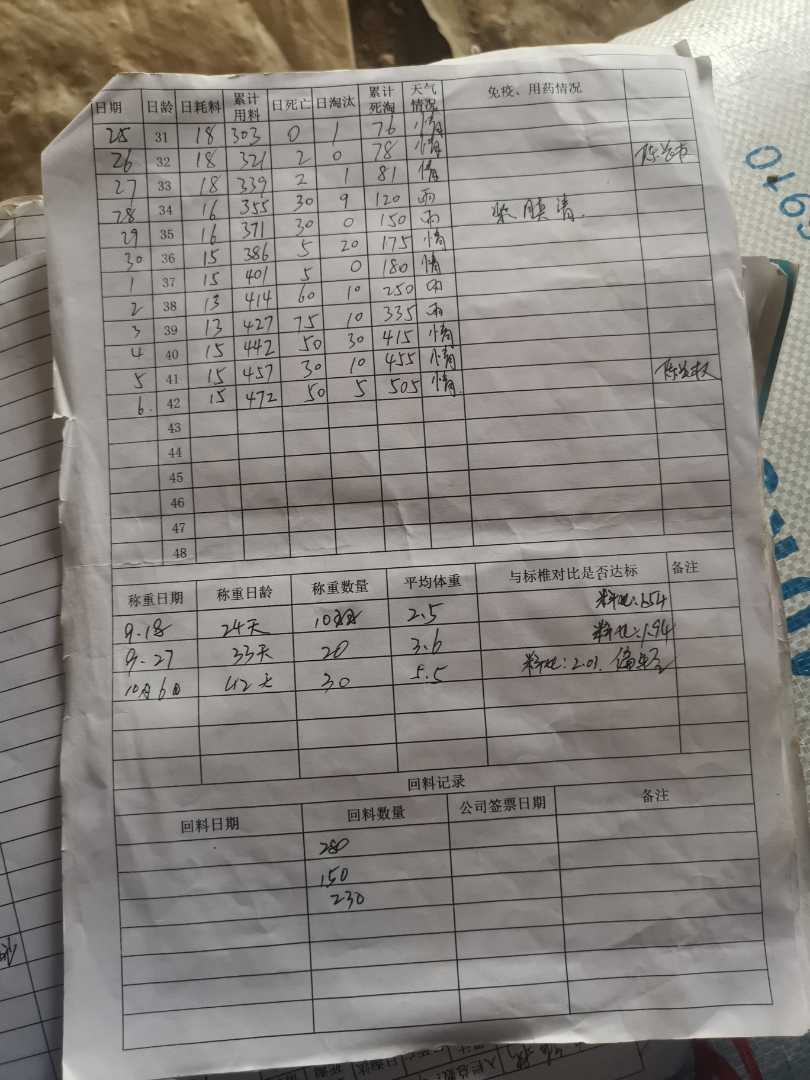 日期 日龄 日耗料 累计用料 日死亡 日淘汰 累计死淘 天气情况 免疫、用药情况
25 31 18 303 0 1 76 晴
26 32 18 321 2 0 78 晴
27 33 18 339 2 1 81 晴
28 34 16 355 30 9 120 雨
29 35 16 371 30 0 150 雨
30 36 15 386 5 20 175 晴
1 37 15 401 5 0 180 晴
2 38 13 414 60 10 250 雨
3 39 13 427 75 10 335 雨
4 40 15 442 50 30 415 晴
5 41 15 457 30 10 455 晴
6. 42 15 472 50 5 505 晴
43
44
45
46
47
48
称重日期 称重日龄 称重数量 平均体重 与标椎对比是否达标 备注
9.18 24天 10 2.5 料比:1.54
9.27 33天 20 3.6 料比:1.94
10月6日 42天 30 5.5 料比:2.01. 偏轻
回料记录
回料日期 回料数量 公司签票日期 备注
280
150
230